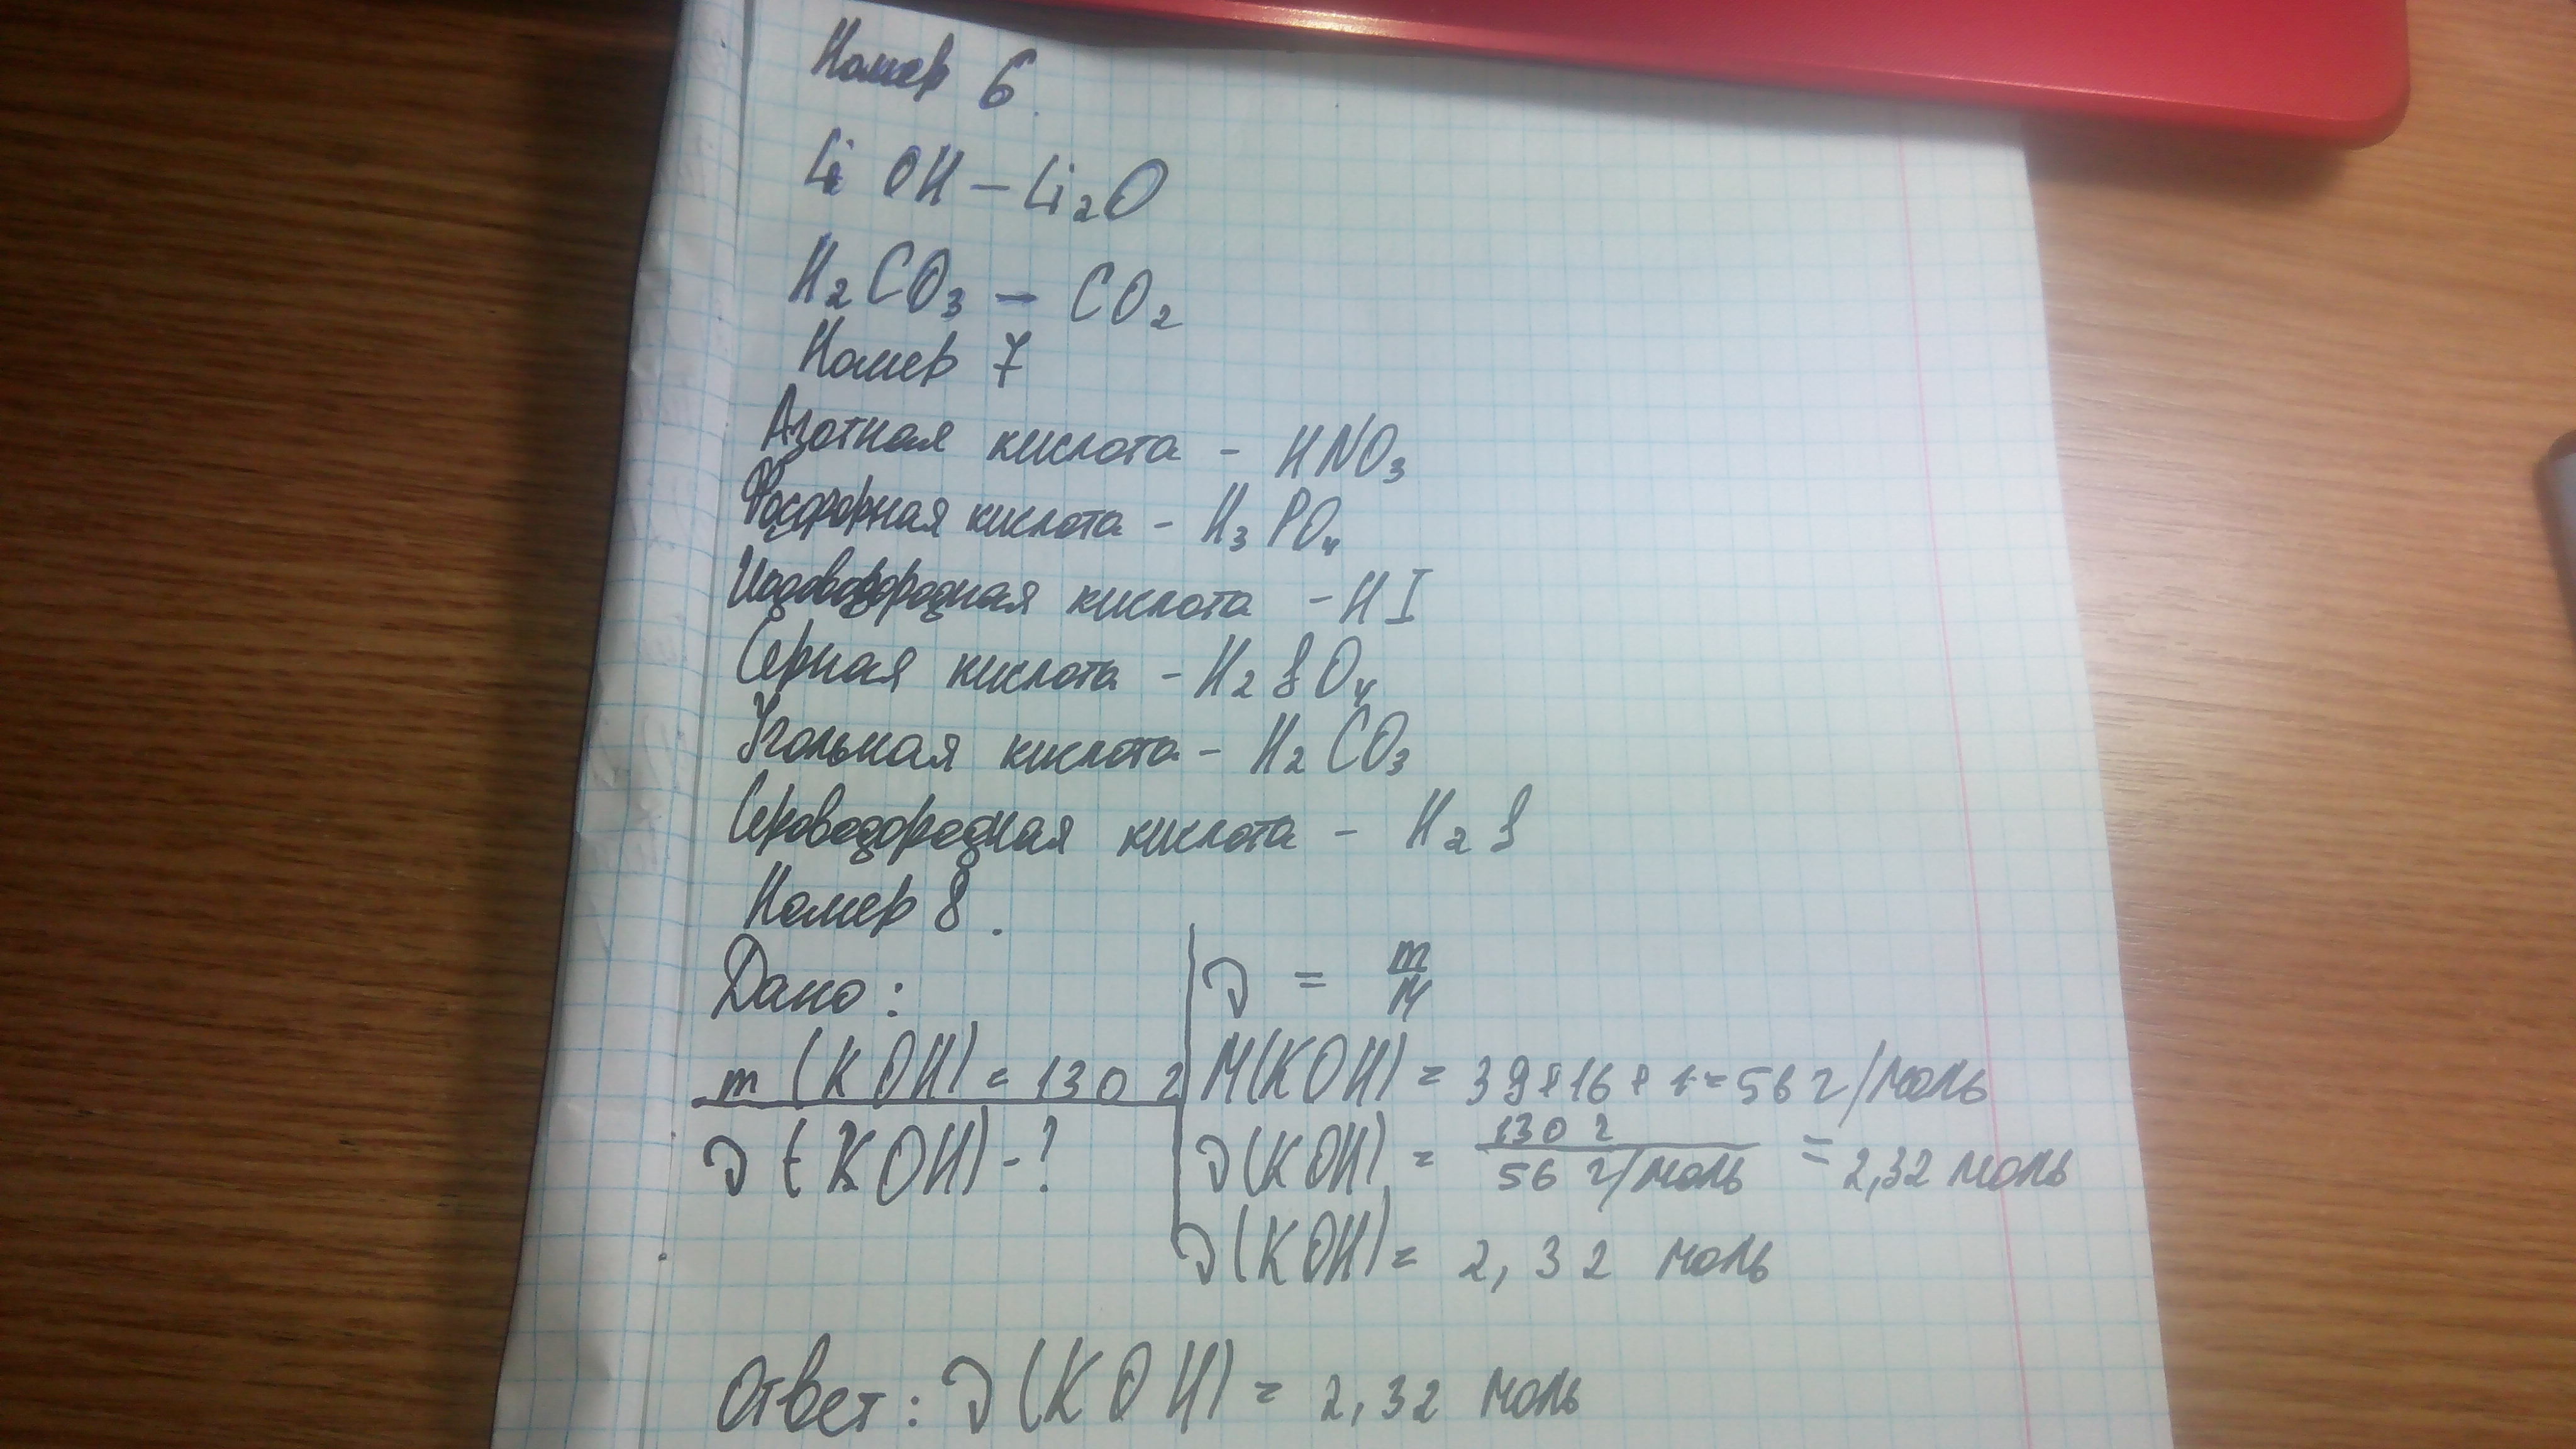 Номер 6.
Li OH – Li₂O
H₂CO₃ – CO₂
Номер 7
Азотная кислота – HNO₃
Фосфорная кислота – H₃PO₄
Иодоводородная кислота – HI
Серная кислота – H₂SO₄
Угольная кислота – H₂CO₃
Сероводородная кислота – H₂S
Номер 8.
Дано:
m (KOH) = 130 г
ν (KOH) - ?
ν = m/M
M(KOH) = 39+16+1=56 г/моль
ν(KOH) = 130 г / 56 г/моль = 2,32 моль
ν(KOH) = 2,32 моль
Ответ: ν(KOH) = 2,32 моль